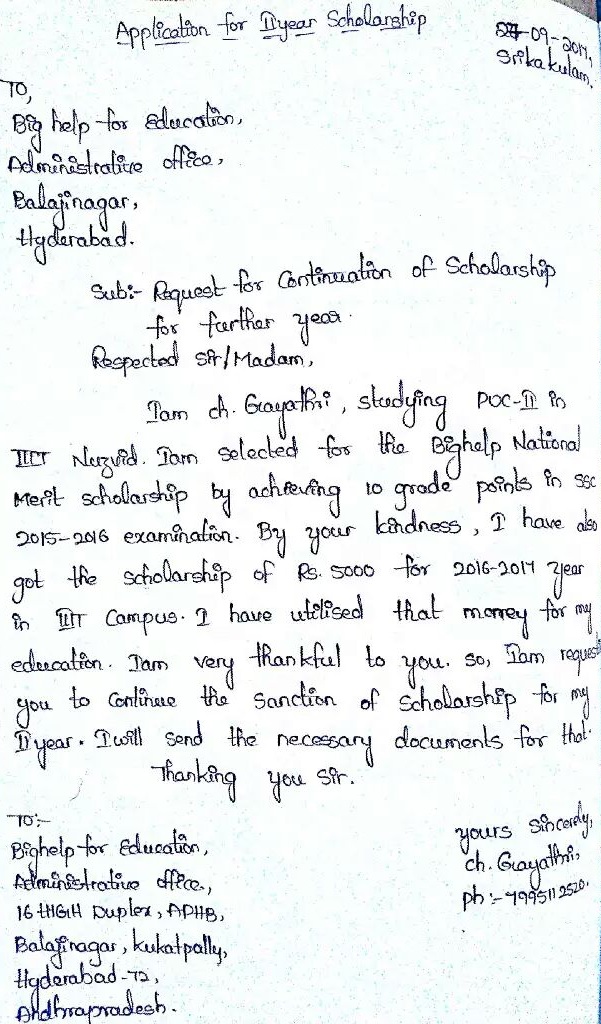 Application for II year Scholarship
-09-2017,
Srikakulam.
TO,
Big help for Education,
Administrative office,
Balajinagar,
Hyderabad.
Sub:- Request for Continuation of Scholarship
for further year.
Respected Sir/Madam,
I am ch. Gayathri, studying PUC-II in
IIIT Nuzvid. I am selected for the Bighelp National
Merit scholarship by achieving 10 grade points in SSC
2015-2016 examination. By your kindness, I have also
got the scholarship of Rs. 5000 for 2016-2017 year
in IIIT Campus. I have utilised that money for my
education. I am very thankful to you. So, I am request
you to continue the sanction of scholarship for my
II year. I will send the necessary documents for that.
Thanking you Sir.
TO:-
Bighelp for Education,
Administrative office,
16 HIGH Duplex, APHB,
Balajinagar, kukatpally,
Hyderabad-72,
Andhrapradesh.
yours Sincerely,
ch. Gayathri,
ph:- 7995112520.